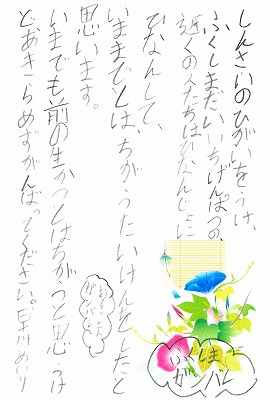 しんさいのひがいをうけ、
ふくしまだいいちげんぱつの、
近くの人たちはひなんじょに
ひなんして、
いままでとは、ちがうたいけんをしたと
思います。
いまでも前の生かつとはちがうと思うけ
どあきらめずがんばってください。早川めいり
ふくしま
ガンバレ